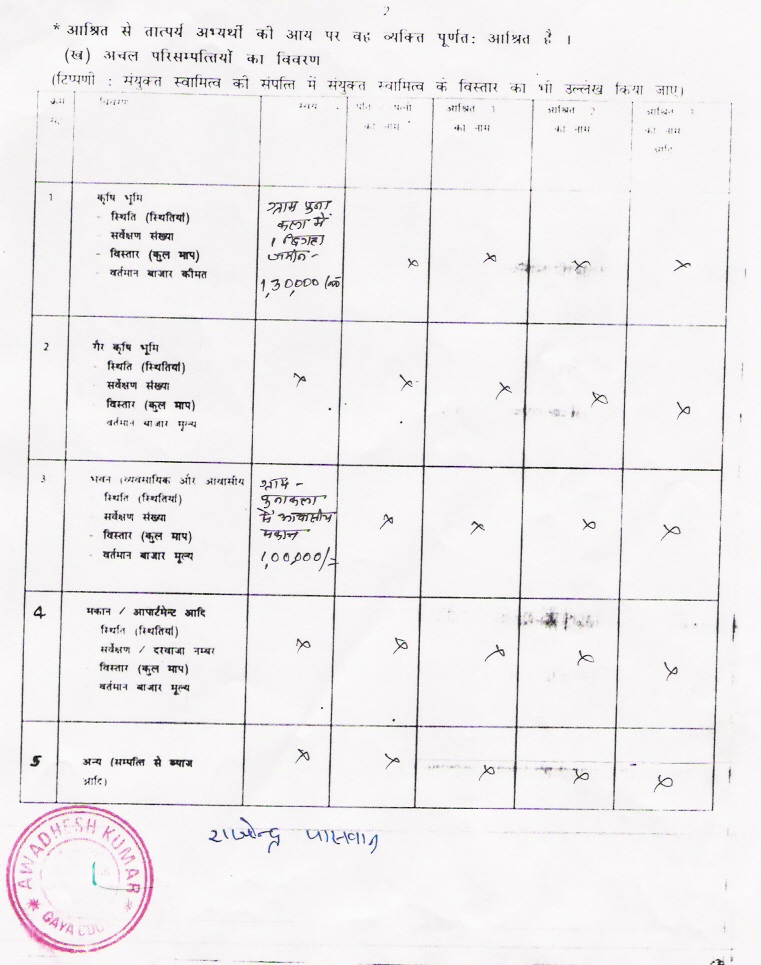 2
* आश्रित से तात्पर्य अभ्यर्थी की आय पर वह व्यक्ति पूर्णत: आश्रित है ।
(ख) अचल परिसम्पत्तियों का विवरण
(टिप्पणी : संयुक्त स्वामित्व की संपत्ति में संयुक्त स्वामित्व के विस्तार का भी उल्लेख किया जाए)
क्रम विवरण स्वयं पति / पत्नी का नाम आश्रित 1 का नाम आश्रित 2 का नाम आश्रित 3 का नाम आदि
1 कृषि भूमि
- स्थिति (स्थितियां)
- सर्वेक्षण संख्या
- विस्तार (कुल माप)
- वर्तमान बाजार कीमत
ग्राम
कला में
1
जमीन -
1,30,000
x x x x
2 गैर कृषि भूमि
- स्थिति (स्थितियां)
सर्वेक्षण संख्या
विस्तार (कुल माप)
वर्तमान बाजार मूल्य
x x x x x
3 भवन (व्यवसायिक और आवासीय
स्थिति (स्थितियां)
- सर्वेक्षण संख्या
- विस्तार (कुल माप)
- वर्तमान बाजार मूल्य
ग्राम -
में आवासीय
मकान
1,00,000/=
x x x x
4 मकान / आपार्टमेन्ट आदि
स्थिति (स्थितियां)
सर्वेक्षण / दरवाजा नम्बर
विस्तार (कुल माप)
वर्तमान बाजार मूल्य
x x x x x
5 अन्य (सम्पत्ति से ब्याज
आदि)
x x x x x
राजेन्द्र पासवान
AWADHESH KUMAR
GAYA